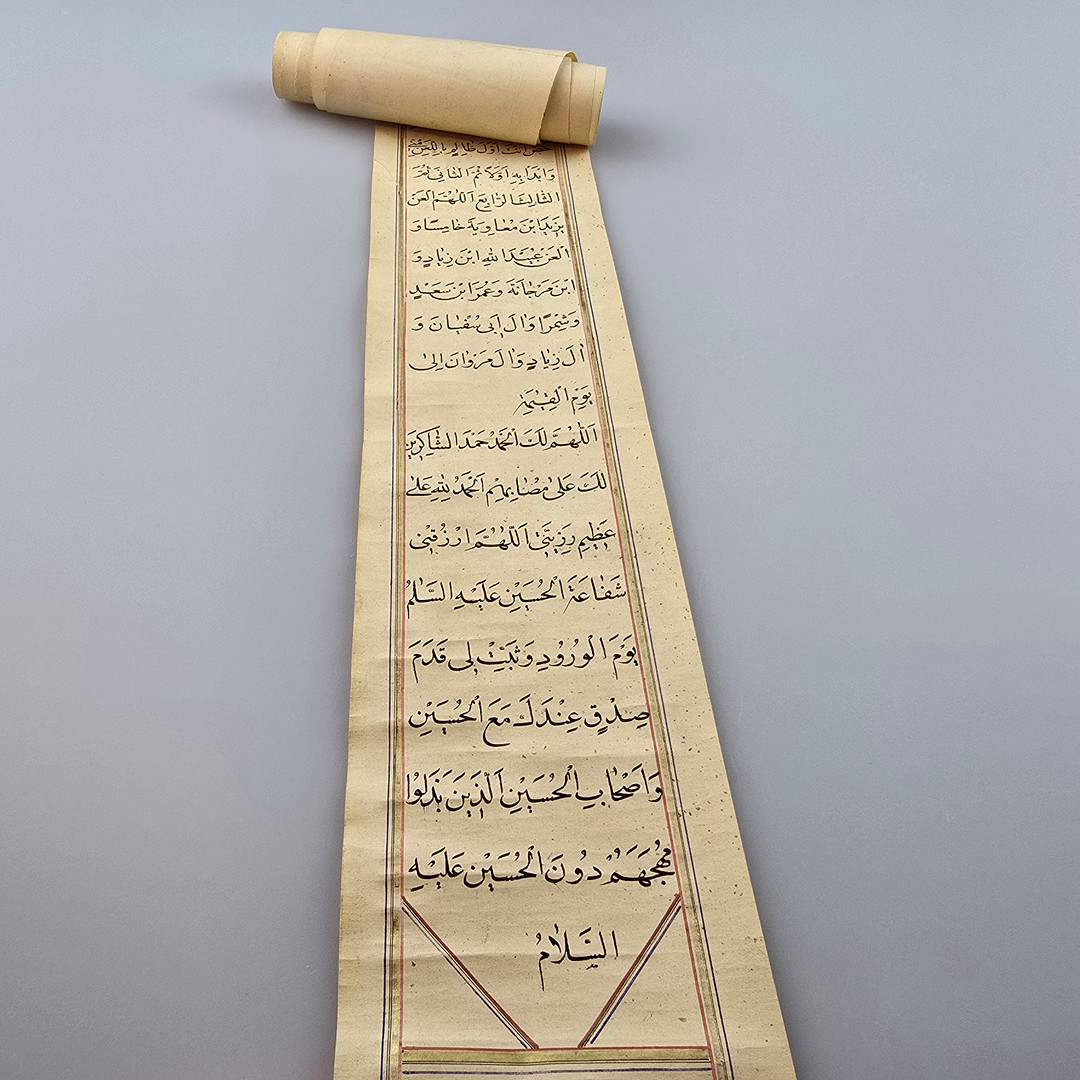 خص انت اول ظالم باللعن منی
وَابْدَا بِهِ اَوَّلاً ثُمَّ الثّانِیَ ثُمَّ
الثّالِثَ الرّابِعَ اَللّٰهُمَّ الْعَنْ
یَزِیدَ ابْنَ مُعاوِیَةَ خامِسًا وَ
الْعَنْ عُبَیْدَ اللهِ ابْنَ زِیادٍ وَ
ابْنَ مَرْجانَةَ وَعُمَرَ ابْنَ سَعْدٍ
وَشِمْرًا وَالَ اَبی سُفْیانَ وَ
الَ زِیادٍ وَالَ مَرْوانَ اِلیٰ
یَوْمِ الْقِیٰمَةِ
اَللّٰهُمَّ لَكَ الْحَمْدُ حَمْدَ الشّاکِرِینَ
لَكَ عَلیٰ مُصابِهِمْ اَلْحَمْدُ لِلّٰهِ عَلیٰ
عَظِیمِ رَزِیَّتی اَللّٰهُمَّ ارْزُقْنی
شَفاعَةَ الْحُسَیْنِ عَلَیْهِ السَّلٰمُ
یَوْمَ الْوُرُوْدِ وَثَبِّتْ لی قَدَمَ
صِدْقٍ عِنْدَكَ مَعَ الْحُسَیْنِ
وَاَصْحابِ الْحُسَیْنِ الَّذینَ بَذَلُوا
مُهَجَهُمْ دُوْنَ الْحُسَیْنِ عَلَیْهِ
السَّلامُ